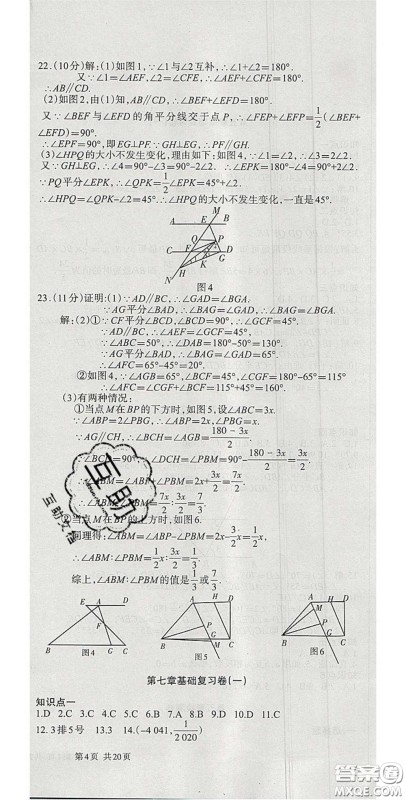 22.(10分)解:(1)如图1,∵∠1与∠2互补,∴∠1+∠2=180°.
又∵∠1=∠AEF,∠2=∠CFE,∴∠AEF+∠CFE=180°.
∴AB∥CD.
(2)如图2,由(1)知,AB∥CD,∴∠BEF+∠EFD=180°.
又∵∠BEF与∠EFD的角平分线交于点P,∴∠FEP+∠EFP=1/2(∠BEF+
∠EFD)=90°.
∴∠EPF=90°,即EG⊥PF.∵GH⊥EG,∴PF∥GH.
(3)∠HPQ的大小不发生变化,理由如下:如图4,∵∠1=∠2,∴∠3=2∠2.
又∵GH⊥EG,∴∠4=90°-∠3=90°-2∠2.∴∠EPK=180°-∠4=90°+2∠2.
∵PQ平分∠EPK,∴∠QPK=1/2∠EPK=45°+∠2.
∴∠HPQ=∠QPK-∠2=45°.∴∠HPQ的大小不发生变化,一直是45°.
M
E
B
A
Q
P
C
F
G
D
K
H
N
图4
23.(11分)证明:(1)∵AD∥BC,∴∠GAD=∠BGA.
∵AG平分∠BAD,∴∠BAG=∠GAD.∴∠BAG=∠BGA.
解:(2)①∵CF平分∠BCD,∠BCD=90°,∴∠GCF=45°.
∵AD∥BC,∴∠AEF=∠GCF=45°.
∵∠ABC=50°,∴∠DAB=180°-50°=130°.
∵AG平分∠BAD,∴∠BAG=∠GAD=65°.
∴∠AFC=65°-45°=20°.
②如图4,∵∠AGB=65°,∠BCF=45°,∴∠CGF=180°-65°=115°.
∴∠AFC=∠CGF+∠BCF=115°+45°=160°.
(3)有两种情况:
①当点M在BP的下方时,如图5,设∠ABC=3x.
∵∠ABP=2∠PBG,∴∠ABP=2x,∠PBG=x.
∵AG∥CH,∴∠BCH=∠AGB=(180-3x)/2.
∵∠BCD=90°,∴∠DCH=∠PBM=90°-(180-3x)/2=3x/2.
∴∠ABM=∠ABP+∠PBM=2x+3x/2=7x/2.
∴∠ABM:∠PBM=7x/2:3x/2=7/3.
②当点M在BP的上方时,如图6.
同理得:∠ABM=∠ABP-∠PBM=2x-3/2x=1/2x.
∴∠ABM:∠PBM=1/2x:3x/2=1/3.
综上,∠ABM:∠PBM的值是1/3或7/3.
E
A
D
F
B
G
C
图4
A
H
D
P
M
B
G
C
图5
A
H
D
M
P
B
G
C
图6
第七章基础复习卷(一)
知识点一
1.D 2.C 3.C 4.C 5.C 6.B 7.A 8.B 9.D 10.D 11.C
12.3排5号 13.3 14.(-4 041,1/2 020)
第4页 共20页